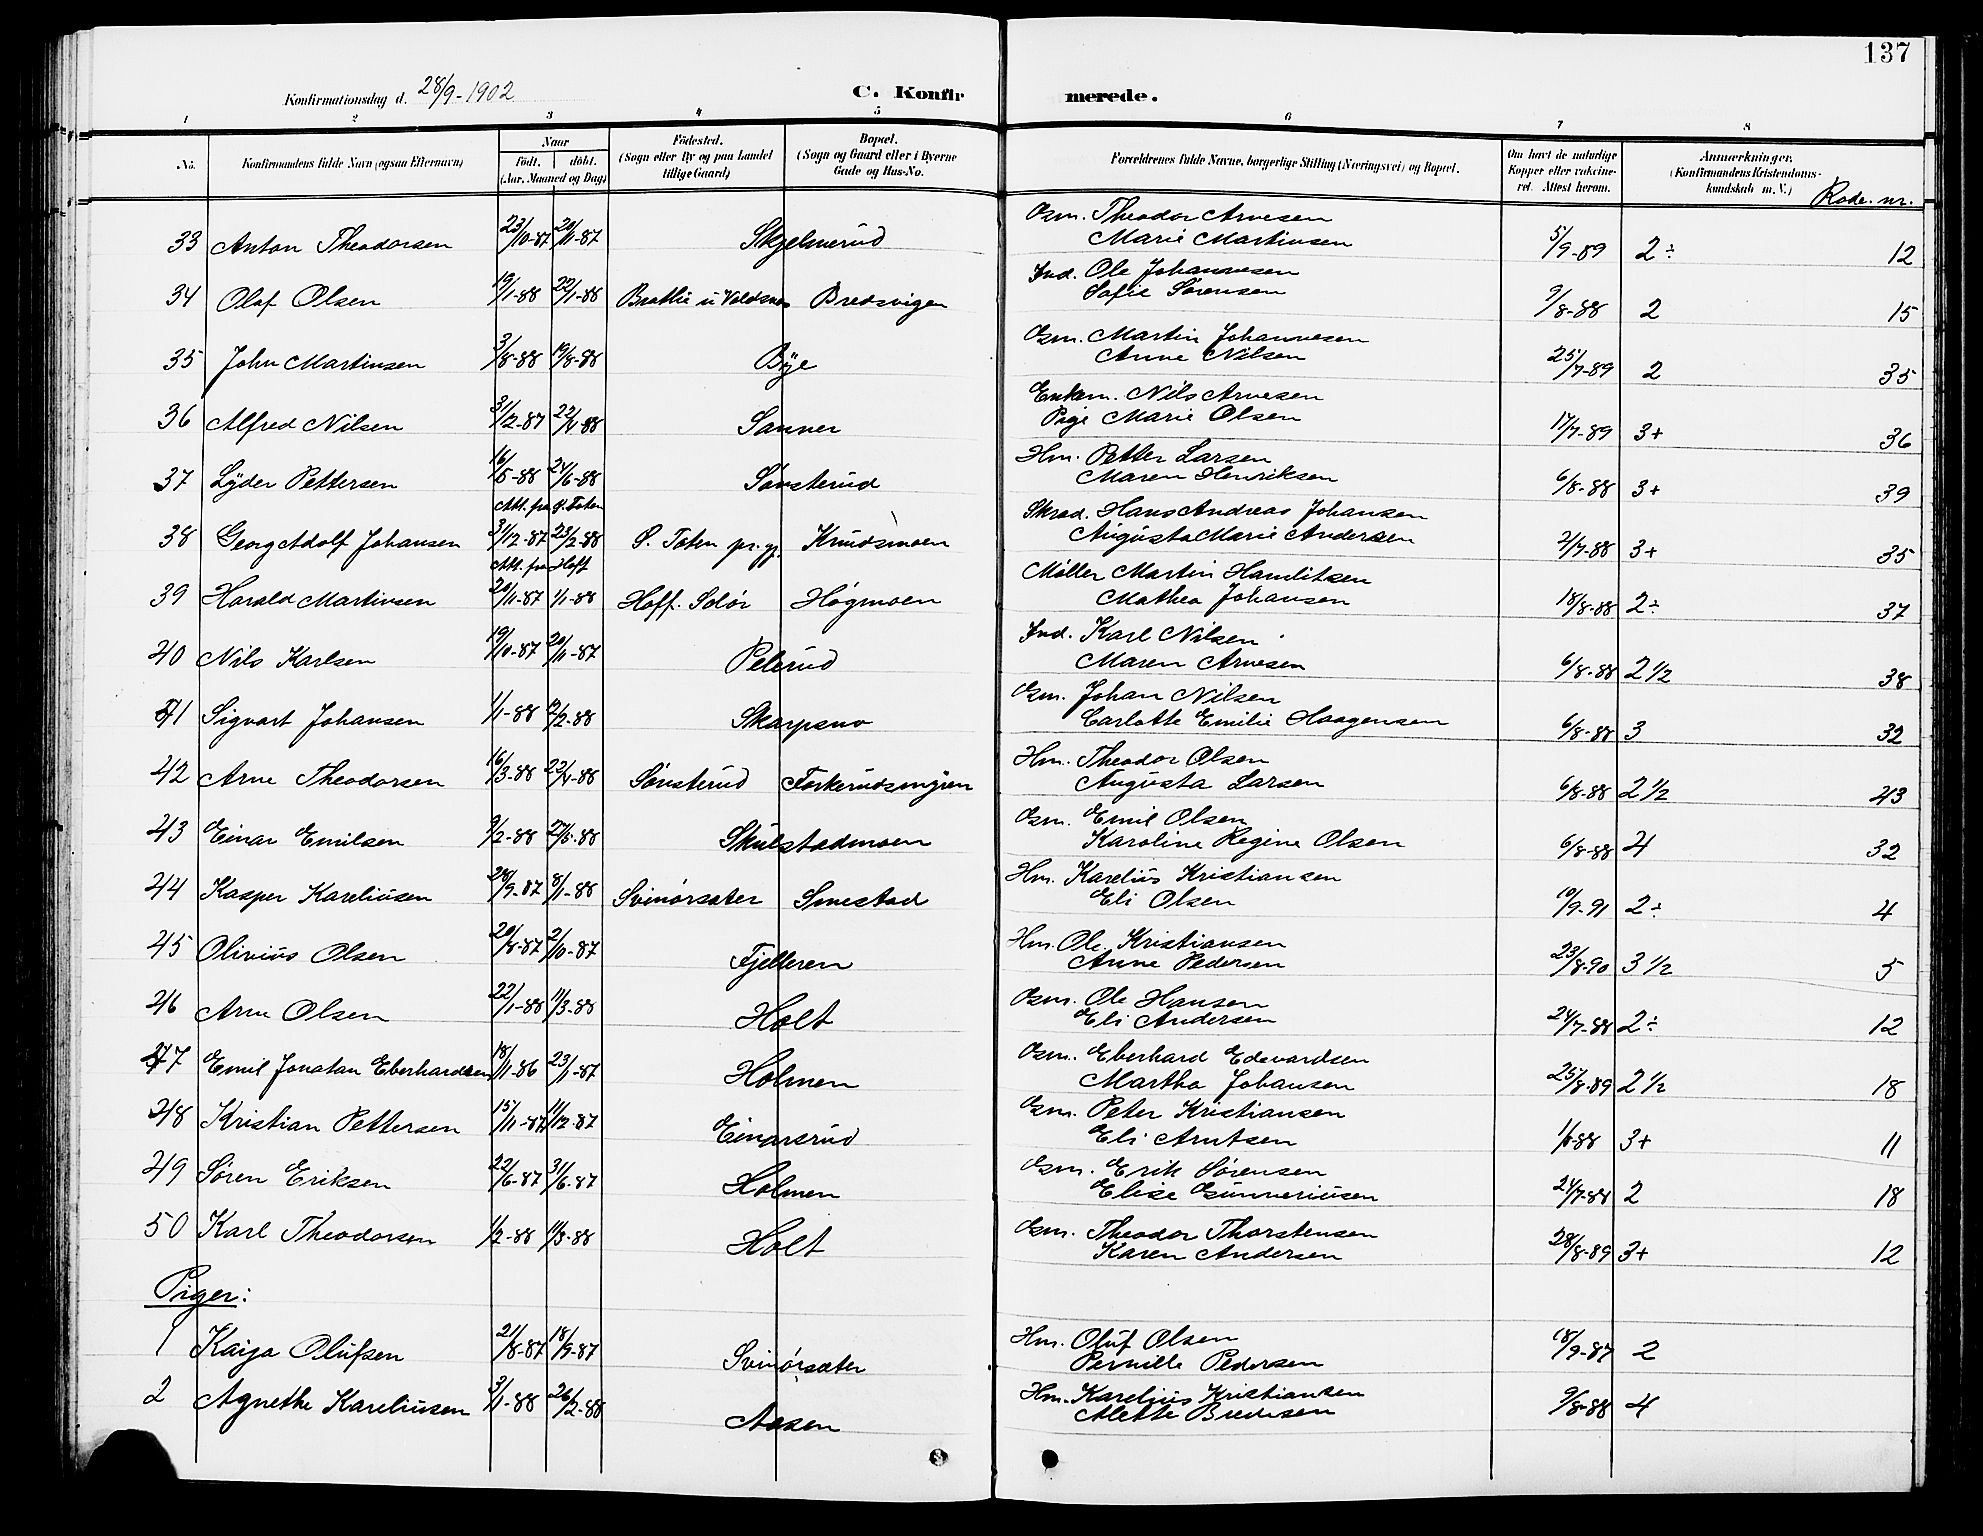 137
Konfirmationsdag d. 28/9-1902
C. Konfirmerede.
1 2 3 4 5 6 7 8
No. Konfirmandens fulde Navn (ogsaa Efternavn) Naar födt. döbt. (Aar, Maaned og Dag) Födested. (Sogn eller By og paa Landet tillige Gaard) Bopæl. (Sogn og Gaard eller i Byerne Gade og Hus-No. Forældrenes fulde Navne, borgerlige Stilling (Næringsvei) og Bopæl. Om havt de naturlige Kopper eller vakcineret. Attest herom. Anmærkninger. (Konfirmandens Kristendomskundskab m. V.) Rode. nr.
33 Anton Theodorsen 23/10-87 20/11-87 Skjelmerud Gm. Theodor Arnesen Marie Martinsen 5/9-89 2÷ 12
34 Olaf Olsen 19/1-88 22/1-88 Bredsvigen Ind. Ole Johannesen Sofie Sørensen 9/8-88 2 15
35 John Martinsen 3/8-88 19/8-88 Bye Gm. Martin Johannesen Anne Nilsen 25/7-89 2 35
36 Alfred Nilsen 31/12-87 22/4-88 Sanner Enkem. Nils Arnesen Pige Marie Olsen 17/7-89 3+ 36
37 Lyder Pettersen 16/5-88 24/6-88 Sønsterud Hm. Petter Larsen Maren Henriksen 6/8-88 3+ 39
Att. fra Ø. Toten
38 Georg Adolf Johansen 31/12-87 23/2-88 Ø. Toten pr.gj. Knudsmoen Skræd. Hans Andreas Johansen Augusta Marie Andersen 2/7-88 3+ 35
Att. fra Hoff
39 Harald Martinsen 20/11-87 1/1-88 Hoff. Solør Høgmoen Møller Martin Hamlitsen Mathea Johansen 18/8-88 2÷ 37
40 Nils Karlsen 19/10-87 20/11-87 Pelerud Ind. Karl Nilsen Maren Arnesen 6/8-88 2 1/2 38
41 Sigvart Johansen 1/1-88 12/2-88 Skarpsno Gm. Johan Nilsen Carlotte Emilie Haagensen 6/8-88 3 32
42 Arne Theodorsen 16/3-88 22/4-88 Sønsterud Forkerudsmyren Hm. Theodor Olsen Augusta Larsen 6/8-88 2 1/2 43
43 Einar Emilsen 9/2-88 27/5-88 Skulstadmoen Gm. Emil Olsen Karoline Regine Olsen 6/8-88 4 32
44 Kasper Kareliusen 28/9-87 8/1-88 Svinørsæter Smestad Hm. Karelius Kristiansen Eli Olsen 10/9-91 2÷ 4
45 Olivius Olsen 20/8-87 2/10-87 Fjelleren Hm. Ole Kristiansen Anne Pedersen 23/8-90 3 1/2 5
46 Arne Olsen 22/1-88 11/3-88 Holt Gm. Ole Hansen Eli Andersen 24/7-88 2÷ 12
47 Emil Jonatan Eberhardsen 18/11-86 23/1-87 Holmen Gm. Eberhard Edevardsen Martha Johansen 25/8-89 2 1/2 18
48 Kristian Pettersen 15/11-87 11/12-87 Einarsrud Gm. Peter Kristiansen Eli Arntsen 3+ 11
49 Søren Eriksen 22/6-87 31/6-87 Holmen Gm. Erik Sørensen Elise Gunneriusen 24/7-88 2 18
50 Karl Theodorsen 1/2-88 11/3-88 Holt Gm. Theodor Thorstensen Karen Andersen 28/8-89 3+ 12
Piger:
1 Kaija Olufsen 21/8-87 18/9-87 Svinørsæter Hm. Oluf Olsen Pernille Pedersen 18/9-87 2
2 Agnethe Kareliusen 3/1-88 26/2-88 Aasen Hm. Karelius Kristiansen Alette Bredesen 9/8-88 4